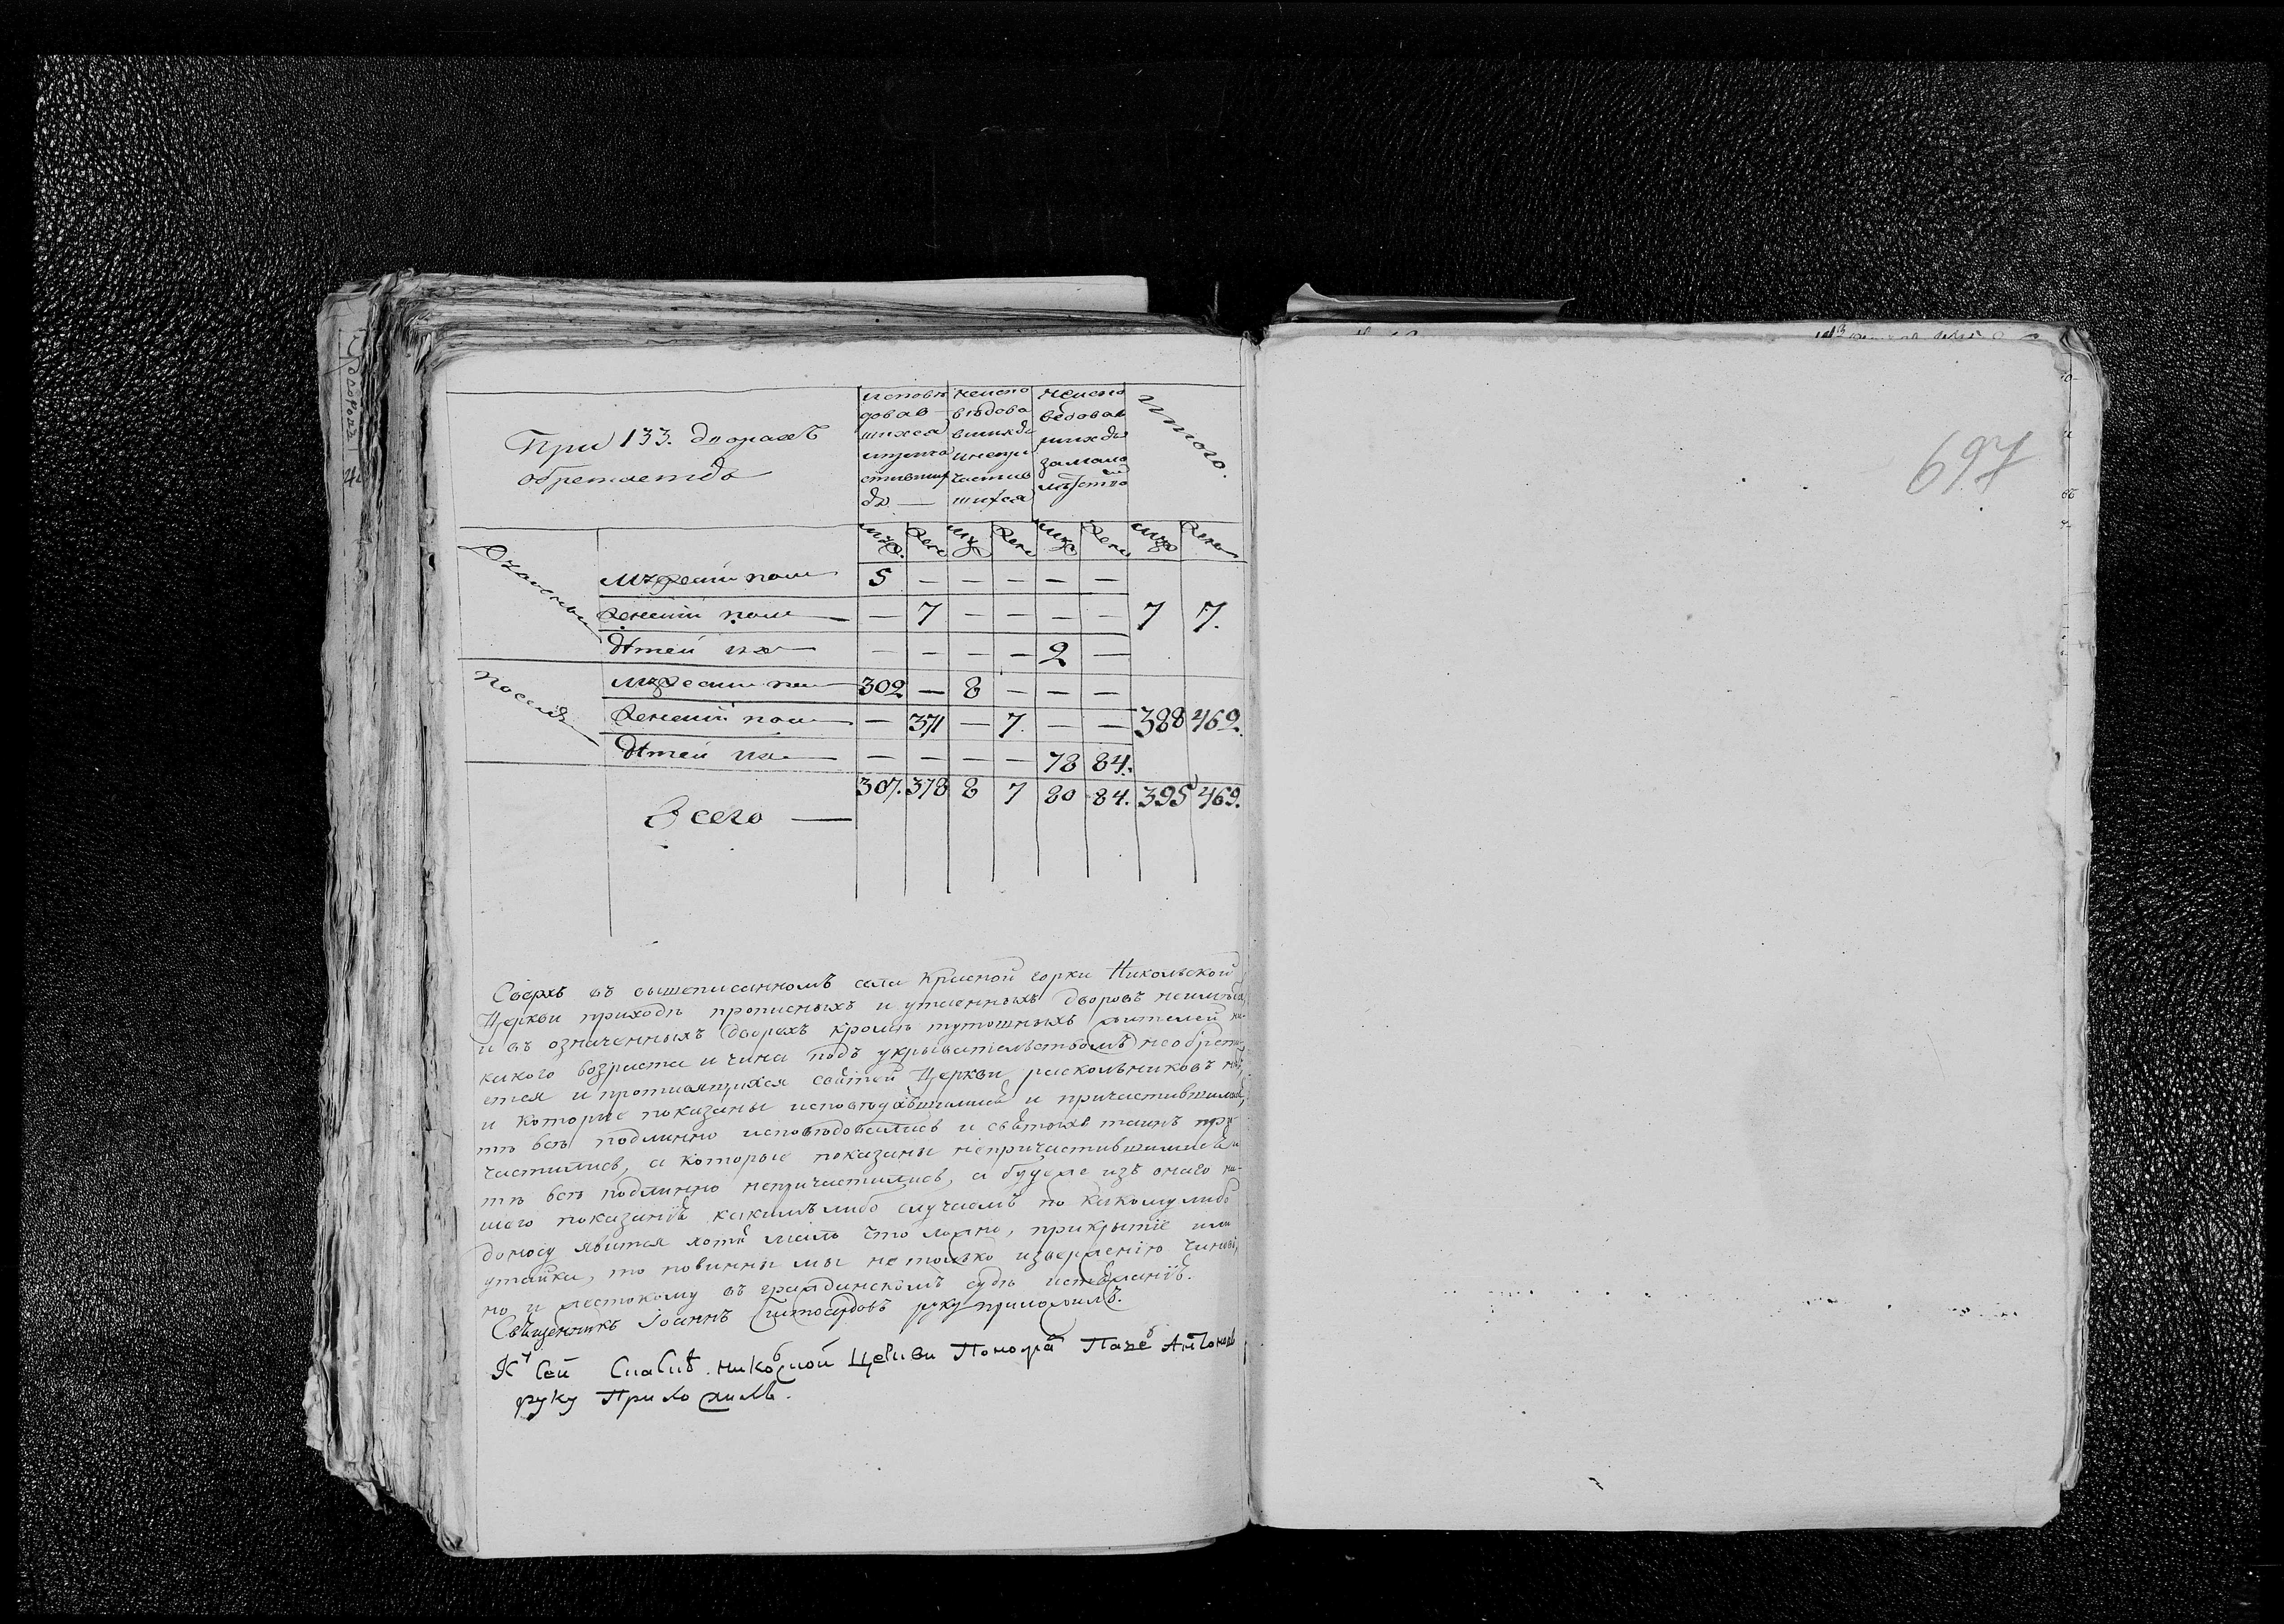 При 133. дворахъ
обретаетца
исповѣ
довав-
шихся
иприча
стивших
ца —
неиспо
вѣдова
вшихца
инепри
частив
шихся
неиспо
ведовав
шихца
замало
лѣтство
Итого.
муж. жен муж жен муж жен муж жен
мужеска полу 5 — — — — —
женска полу — 7 — — — — 7 7.
дѣтей их — — — — 2 —
поселя
мужеска пол 302 — 8 — — —
женска полу — 371 — 7. — — 388 462.
дѣтей их — — — — 78 84.
Всего — 307. 378 8 7 80 84. 395 469.
Сверхъ въ вышеписанномъ села Красной горки Никольской
Церкви приходѣ прописныхъ и утаенныхъ дворовъ неимѣца,
и въ означенныхъ дворахъ кромѣ тутошныхъ жителей ни-
какого возраста и чина подъ укрывательствомъ необрета-
ется и противящихся святей Церкви раскольниковъ нѣтъ,
и которые показаны исповѣдавшимися и причастившимися,
тѣ всѣ подлинно исповѣдовались и святыхъ таинъ при-
частились, а которые показаны непричастившимися и
тѣ всѣ подлинно непричастились, а будеже изъ онаго на-
шего показанія какимълибо случаемъ по какомулибо
доносу явится хотя мало что ложно, прикрытіе или
утайка, то повинны мы не только изверженію чиновъ,
но и жестокому въ гражданскомъ судѣ истязанію.
Священникъ Іоаннъ руку приложилъ.
К сей Церкви Понома Антоновъ
руку Приложилъ.
697